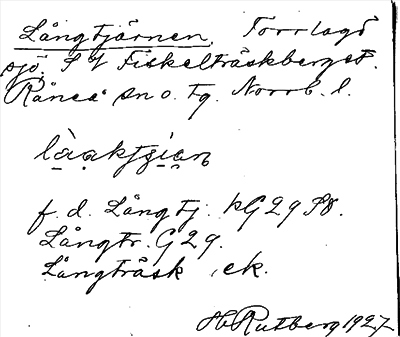 Långtjärnen. Torrlagd
sjö. S. V Fiskelträskberget.
Råneå sn o. tg. Norrb. l.
f. d. Långtj. KG 29 SV.
Långtr. G 29.
Långträsk, ek.
H Rutberg 1927